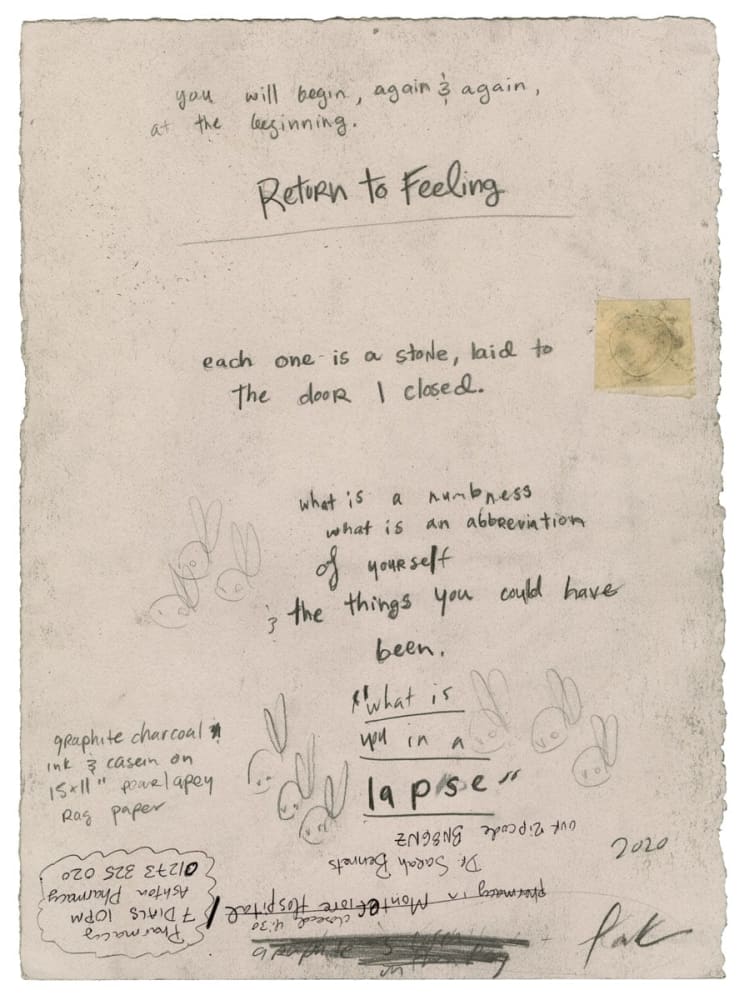 you will begin, again & again,
at the beginning.
Return to Feeling
each one is a stone, laid to
the door I closed.
what is a numbness
what is an abbreviation
of yourself
& the things you could have
been.
"what is
you in a
lapse"
graphite charcoal
ink & casein on
15x11"
Rag paper
our zipcode BN86NZ
Dr. Sarah Bennets
2020
pharmacy in Montefiore Hospital
closed 4:30
Pharmacy
7 DIALS 10PM
Ashton Pharmacy
01273 325 020